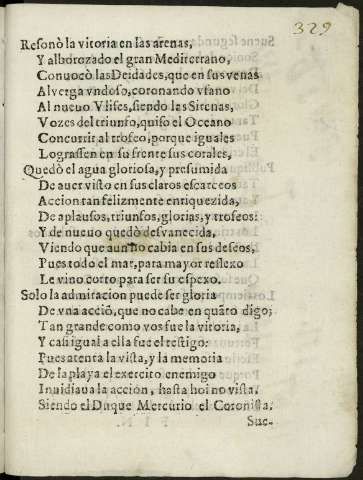 329
Resonò la vitoria en las arenas,
Y alborozado el gran Mediterrano,
Conuocò las Deidades, que en sus venas
Al verga vndoso, coronando vfano
Al nueuo Vlises, siendo las Sirenas,
Vozes del triunfo, quiso el Oceano
Concurrir al trofeo, porque iguales
Lograssen en su frente sus corales,
Quedò el agua gloriosa, y presumida
De auer visto en sus claros escarceos
Accion tan felizmente enriquezida,
De aplausos, triunfos, glorias, y trofeos:
Y de nueuo quedò desvanecida,
Viendo que aun no cabia en sus deseos,
Pues todo el mar, para mayor reflexo
Le vino corto para ser su espexo.
Solo la admiracion puede ser gloria
De vna acciõ, que no cabe en quãto digo;
Tan grande como vos fue la vitoria,
Y casi igual a ella fue el testigo:
Pues atenta la vista, y la memoria
De la playa el exercito enemigo
Inuidiaua la accion, hasta hoi no vista,
Siendo el Duque Mercurio el Coronista.
Sue-